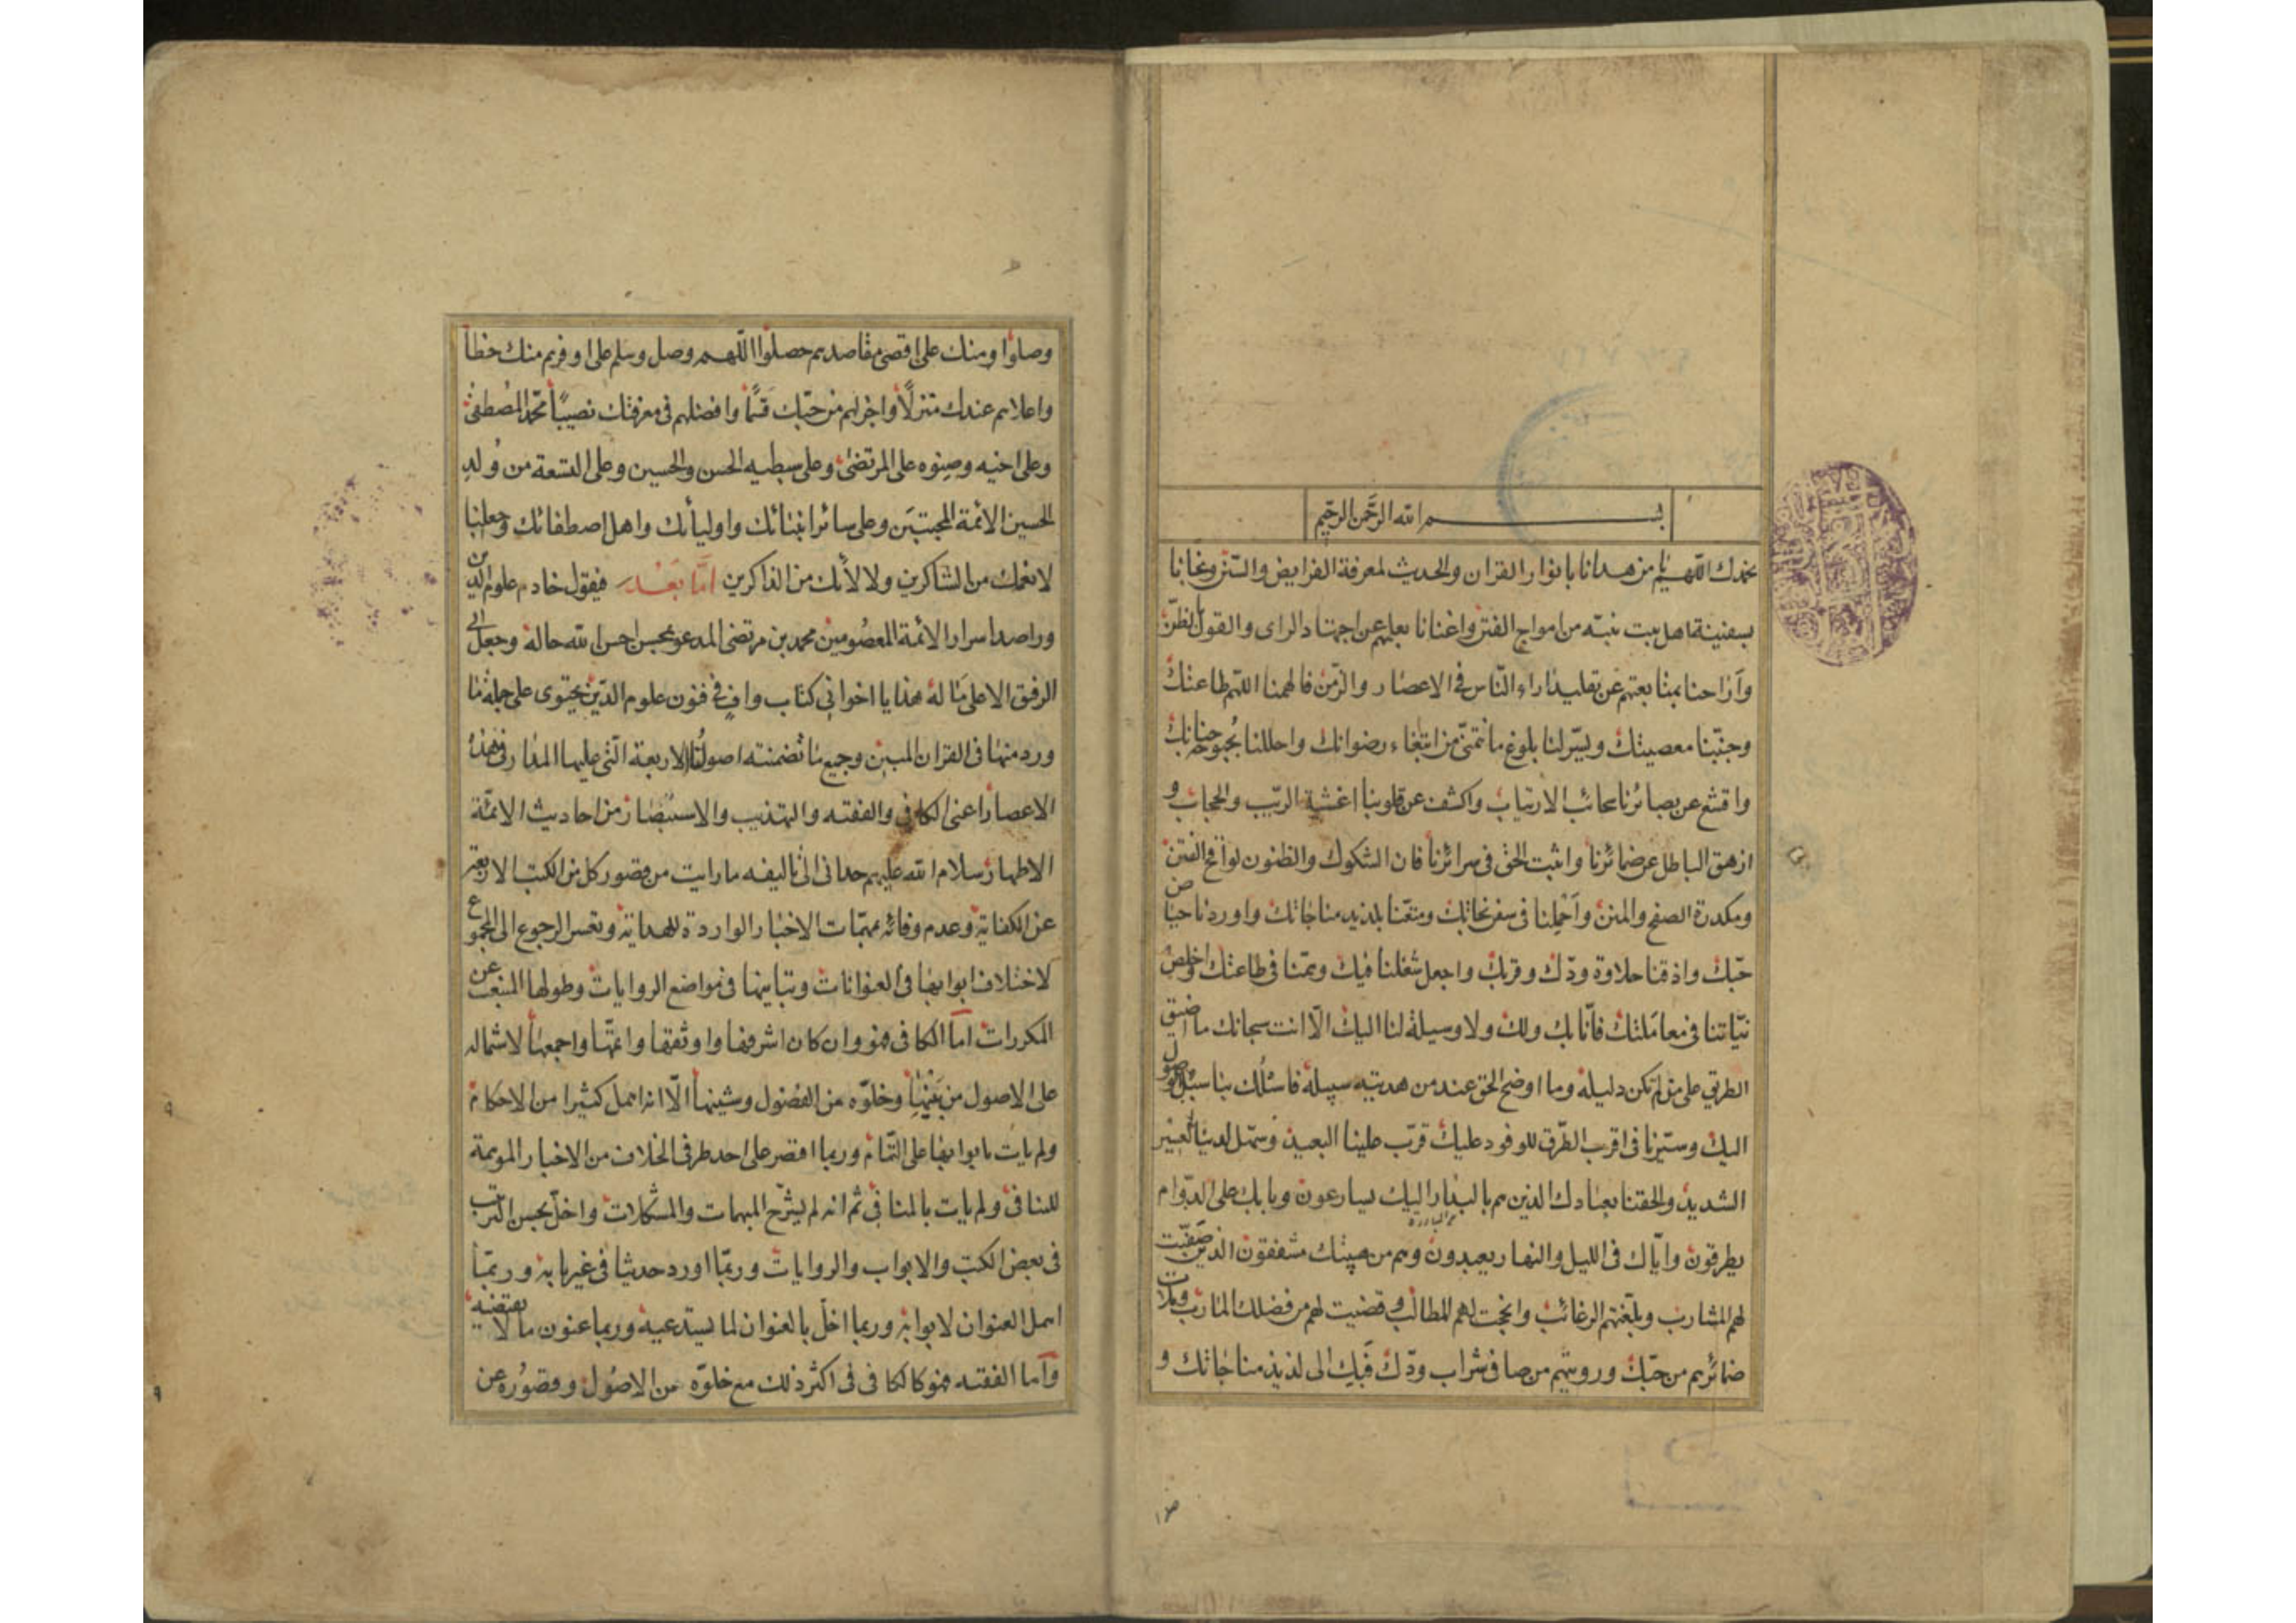 بسم الله الرحمن الرحيم
نحمدك اللهم يا من هدانا بانوار القران والحديث لمعرفة الفرايض والسنن ونجانا
بسفينة اهل بيت نبيه من امواج الفتن واغنانا بعلمهم عن اجتهاد الراى والقول بالظن
وآراحنا بمتابعتهم عن تقليد اراء الناس فى الاعصار والزمن فالهمنا اللهم طاعتك
وجنّبنا معصيتك ويسّر لنا بلوغ ما نتمنّى من ابتغاء رضوانك واحللنا بُحبوحة جنانك
واقشع عن بصائرنا سحائب الارتياب واكشف عن قلوبنا اغشية الريب والحجاب و
ازهق الباطل عن ضمائرنا واثبت الحق فى سرائرنا فان الشكوك والظنون لواقح الفتن
ومكدرة الصفح والمنن وآحملنا فى سفن نجاتك ومتّعنا بلذيذ مناجاتك واوردنا حياض
حبّك واذقنا حلاوة ودّك وقربك واجعل شغلنا فيك وهمّنا فى طاعتك واخلص
نيّاتنا فى معاملتك فانّا بك ولك ولا وسيلة لنا اليك الّا انت سبحانك ما اضيق
الطريق على من لم تكن دليله وما اوضح الحق عند من هديته سبيله فاسئلك بنا سبل الوصول
اليك وسيّرنا فى اقرب الطّرق للوفود عليك قرّب علينا البعيد وسهّل لدينا العسير
الشديد والحقنا بعبادك الذين هم بالبدار اليك يسارعون وبابك على الدّوام
يطرقون وايّاك فى الليل والنهار يعبدون وهم من هيبتك مشفقون الذين صفّيت
لهم المشارب وبلّغتهم الرغائب وانجحت لهم المطالب وقضيت لهم من فضلك المارب وملات
ضمائرهم من حبّك وروّيتهم من صافى شراب ودّك فبك الى لذيذ مناجاتك و
وصلوا ومنك على اقصى مقاصدهم حصلوا اللهم وصل وسلم على اوفرهم منك حظا
واعلاهم عندك منزلاً واجزلهم من حبّك قسمًا وافضلهم فى معرفتك نصيبًا محمّد المصطفى
وعلى اخيه وصنوه على المرتضى وعلى سبطيه الحسن والحسين وعلى التسعة من وُلد
الحسين الائمة المجتبين وعلى سائر انبيائك واوليائك واهل اصطفائك وجعلنا
لانعمك من الشاكرين ولالائك من الذاكرين امّا بعد فيقول خادم علوم الدين
وراصد اسرار الائمة المعصومين محمد بن مرتضى المدعو بمحسن احسن الله حاله وجعل الى
الرفيق الاعلى مآله هذا يا اخوانى كتاب واف فى فنون علوم الدّين يحتوى على جملة ما
ورد منها فى القران المبين وجميع ما تضمنته اصولنا الاربعة التى عليها المدار فى هذه
الاعصار اعنى الكافى والفقيه والتهذيب والاستبصار من احاديث الائمّة
الاطهار سلام الله عليهم حدانى الى تاليفه ما رايت من قصور كل من الكتب الاربعة
عن الكفاية وعدم وفائه بمهمّات الاخبار الواردة للهداية وتعسر الرجوع الى المجموع
لاختلاف ابوابها فى العنوانات وتباينها فى مواضع الروايات وطولها المنبعث عن
المكررات امّا الكافى فهو وان كان اشرفها واوثقها واتمّها واجمعها لاشتماله
على الاصول من بينها وخلوّه من الفضول وشينها الّا انه اهمل كثيرا من الاحكام
ولم يات بابوابها على التّمام وربما اقتصر على احد طرفى الخلاف من الاخبار الموهمة
للتنافى ولم يات بالمنافى ثم انه لم يشرّح المبهمات والمشكلات واخلّ بحسن الترتيب
فى بعض الكتب والابواب والروايات وربّما اورد حديثا فى غير بابه وربّما
اهمل العنوان لابوابه وربما اخلّ بالعنوان لما يستدعيه وربما عنون ما لا يقتضيه
وآما الفقيه فهو كالكافى فى اكثر ذلك مع خلوّه من الاصُول وقصُوره عن